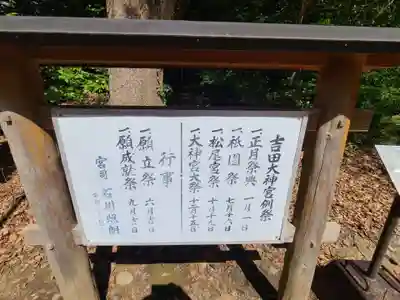 吉田大神宮例祭
一、正月祭典 一月一日
一、祇園祭 七月十六日
一、松尾宮祭 十月十六日
一、大神宮大祭 十二月十五日
行事
一、願立祭 六月吉日
一、願成就祭 九月吉日
宮司 石川